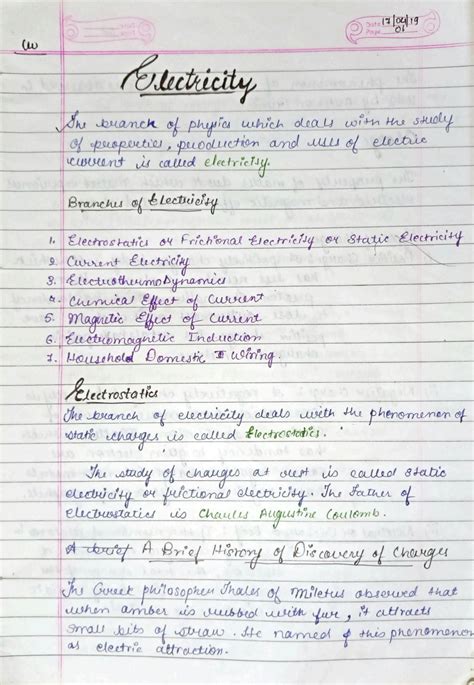 CW
Date 17/04/19
Page 01
Electricity
The branch of physics which deals with the study
of properties, production and uses of electric
current is called electricity.
Branches of Electricity
1. Electrostatics or Frictional Electricity or Static Electricity
2. Current Electricity
3. Electrothermo Dynamics
4. Chemical Effect of Current
5. Magnetic Effect of Current
6. Electromagnetic Induction
7. Household Domestic Wiring.
Electrostatics
The branch of electricity deals with the phenomenon of
static charges is called Electrostatics.
The study of charges at rest is called static
electricity or frictional electricity. The Father of
electrostatics is Charles Augustine Coulomb.
A brief A Brief History of Discovery of Charges
The Greek philosopher Thales of Miletus observed that
when amber is rubbed with fur, it attracts
small bits of straw. He named this phenomenon
as electric attraction.